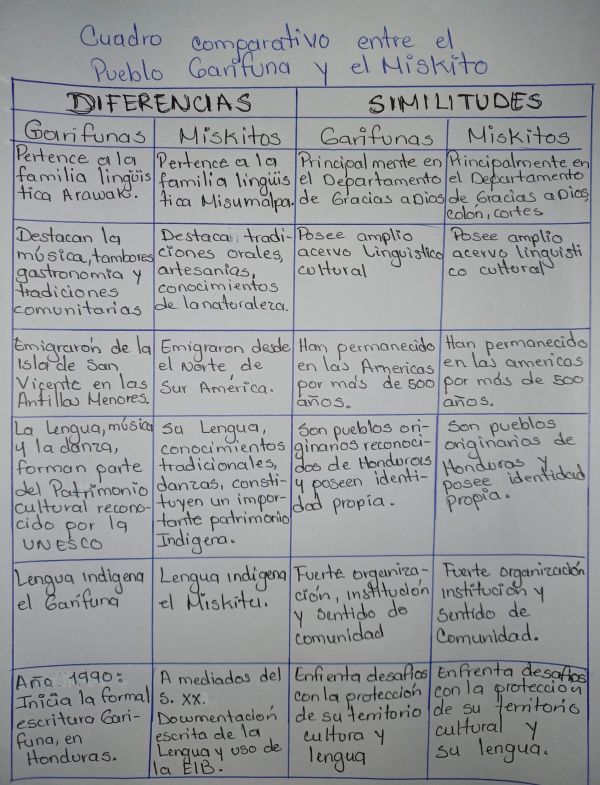 Cuadro comparativo entre el
Pueblo Garifuna y el Miskito
DIFERENCIAS
SIMILITUDES
Garifunas
Miskitos
Garifunas
Miskitos
Pertence a la
familia lingüis
tica Arawak.
Pertence a la
familia lingüis
tica Misumalpa.
Principalmente en
el Departamento
de Gracias a Dios
Principalmente en
el Departamento
de Gracias a Dios,
colón, cortes
Destacan la
música, tambores
gastronomia y
tradiciones
comunitarias
Destaca, tradi-
ciones orales,
artesanias,
conocimientos
de la naturaleza.
Posee amplio
acervo Linguistico
cultural
Posee amplio
acervo linguisti
co cultural
Emigrarón de la
Isla de San
Vicente en las
Antillas Menores.
Emigraron desde
el Norte de
Sur América.
Han permanecido
en las Americas
por más de 500
años.
Han permanecido
en las americas
por más de 500
años.
La Lengua, música
y la danza,
forman parte
del Patrimonio
cultural recono-
cido por la
UNESCO
Su Lengua,
conocimientos
tradicionales,
danzas, consti-
tuyen un impor-
tante patrimonio
Indigena.
Son pueblos ori-
ginarios reconoci-
dos de Honduras
y poseen identi-
dad propia.
Son pueblos
originarios de
Honduras y
posee identidad
propia.
Lengua indigena
el Garifuna
Lengua indígena
el Miskitu.
Fuerte organiza-
ción, institución
y sentido de
comunidad
Fuerte organización
institución y
sentido de
Comunidad.
Año 1990:
Inicia la formal
escritura Gari-
funa, en
Honduras.
A mediados del
S. XX.
Documentación
escrita de la
Lengua y uso de
la EIB.
Enfrenta desafios
con la protección
de su territorio
cultura y
lengua
Enfrenta desafios
con la protección
de su territorio
cultural y
su lengua.